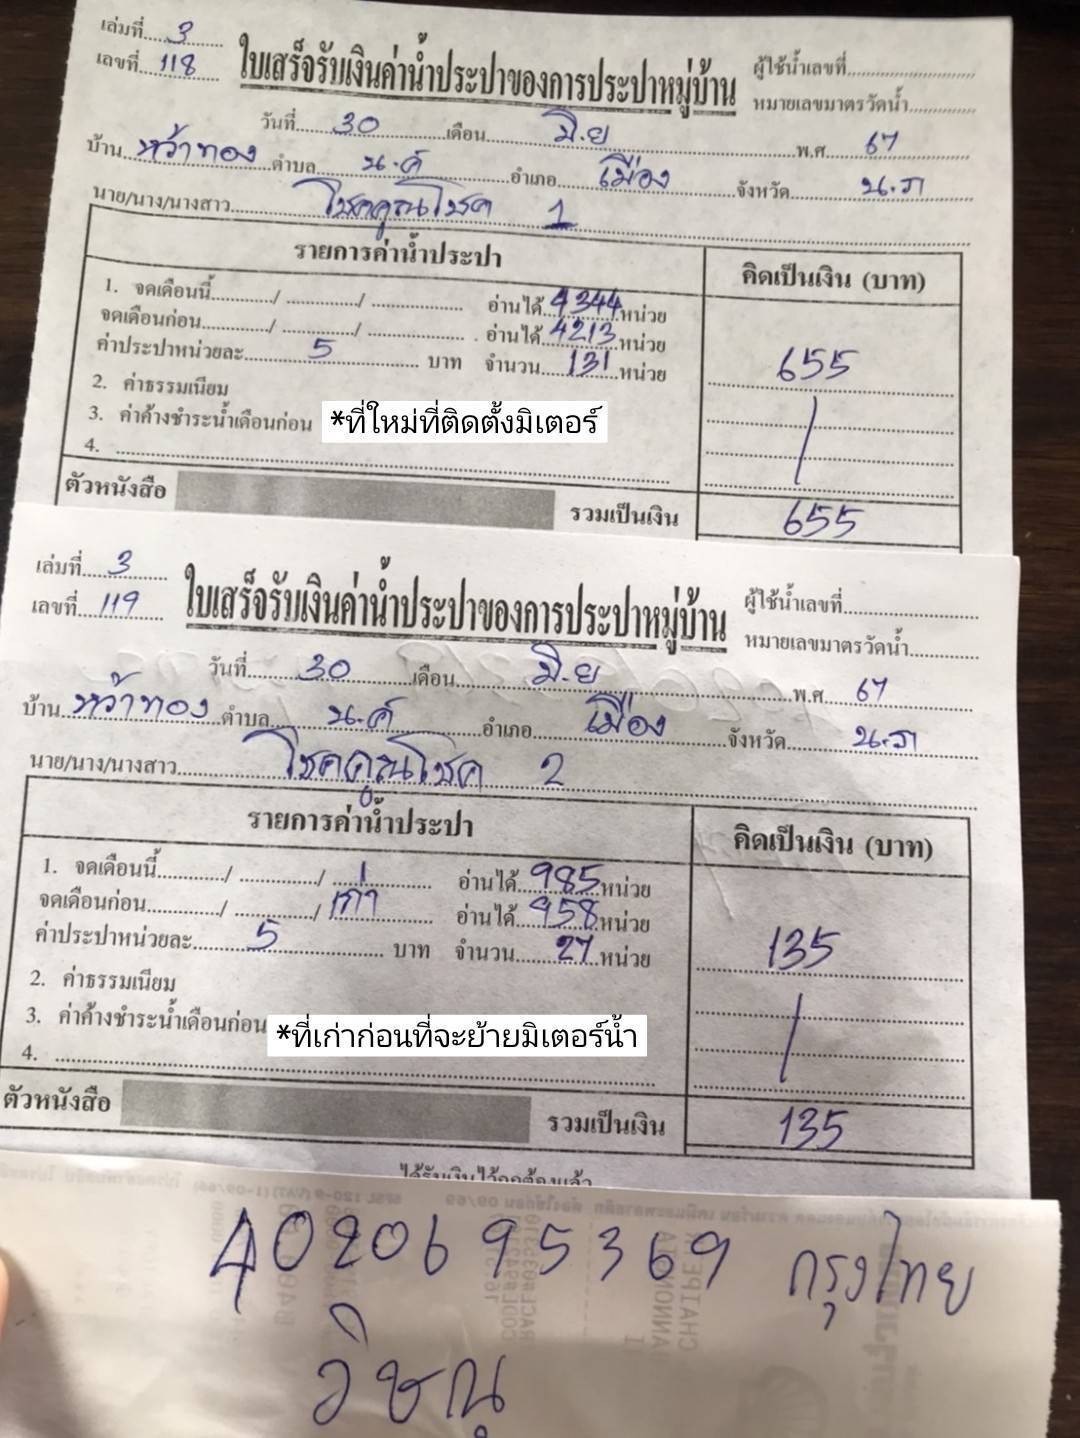 เล่มที่ 3
เลขที่ 118
ใบเสร็จรับเงินค่าน้ำประปาของการประปาหมู่บ้าน
ผู้ใช้น้ำเลขที่
หมายเลขมาตรวัดน้ำ
วันที่ 30 เดือน มิ.ย พ.ศ 67
บ้าน หว้าทอง ตำบล น.ค์ อำเภอ เมือง จังหวัด น.ภ
นาย/นาง/นางสาว โชคคูณโชค 1
รายการค่าน้ำประปา คิดเป็นเงิน (บาท)
1. จดเดือนนี้ / / อ่านได้ 4344 หน่วย
จดเดือนก่อน / / อ่านได้ 4213 หน่วย
ค่าประปาหน่วยละ 5 บาท จำนวน 131 หน่วย 655
2. ค่าธรรมเนียม
3. ค่าค้างชำระน้ำเดือนก่อน *ที่ใหม่ที่ติดตั้งมิเตอร์
4.
ตัวหนังสือ รวมเป็นเงิน 655
เล่มที่ 3
เลขที่ 119
ใบเสร็จรับเงินค่าน้ำประปาของการประปาหมู่บ้าน
ผู้ใช้น้ำเลขที่
หมายเลขมาตรวัดน้ำ
วันที่ 30 เดือน มิ.ย พ.ศ 67
บ้าน หว้าทอง ตำบล น.ค์ อำเภอ เมือง จังหวัด น.ภ
นาย/นาง/นางสาว โชคคูณโชค 2
รายการค่าน้ำประปา คิดเป็นเงิน (บาท)
1. จดเดือนนี้ / / อ่านได้ 985 หน่วย
จดเดือนก่อน / / เก่า อ่านได้ 958 หน่วย
ค่าประปาหน่วยละ 5 บาท จำนวน 27 หน่วย 135
2. ค่าธรรมเนียม
3. ค่าค้างชำระน้ำเดือนก่อน *ที่เก่าก่อนที่จะย้ายมิเตอร์น้ำ
4.
ตัวหนังสือ รวมเป็นเงิน 135
ได้รับเงินไว้ถูกต้องแล้ว
4020695369 กรุงไทย
วิษณุ